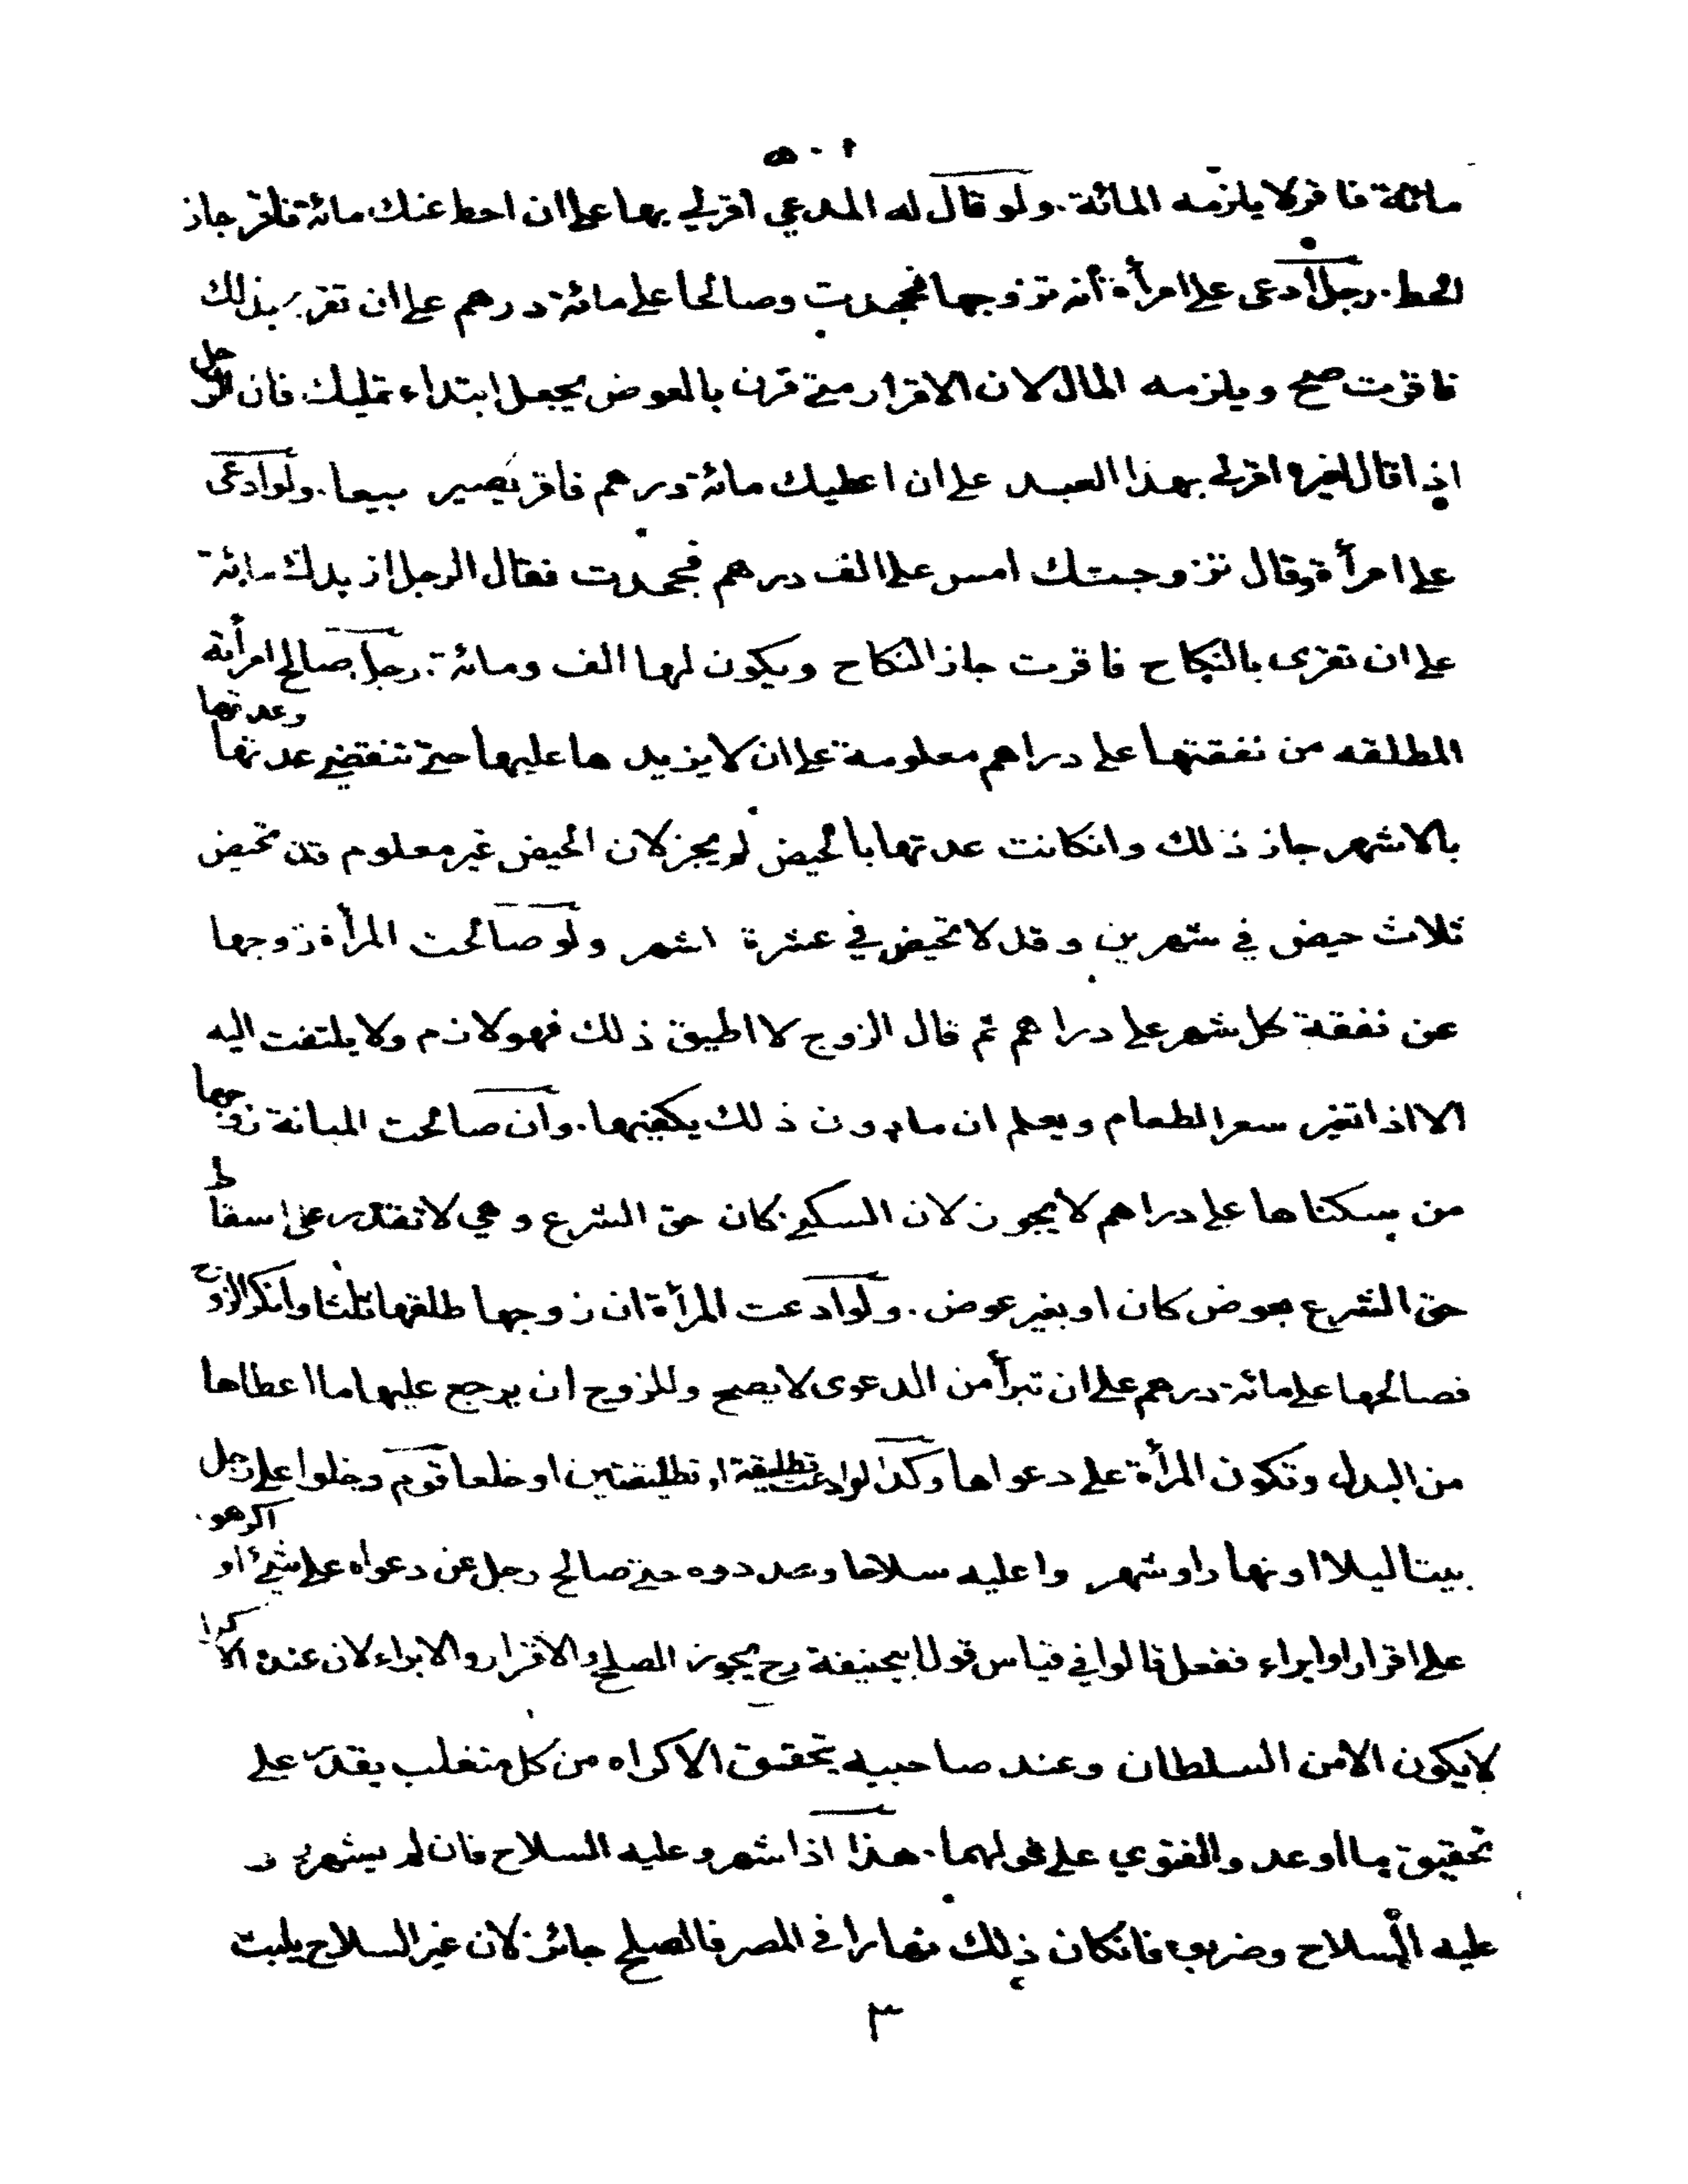 مائة فاقر لا يلزمه المائة. ولو قال له المدعي اقر لي بها على ان احط عنك مائة فاقر جاز
الحط. رجل ادعى على امرأة أنه تزوجها فجحدت وصالحا على مائة درهم على ان تقر بذلك
فاقرت صح ويلزمه المال لان الاقرار متى قرن بالعوض يجعل ابتداء تمليك فان الرجل
اذا قال لغيره اقر لي بهذا العبد على ان اعطيك مائة درهم فاقر يصير بيعا. ولو ادعى
على امرأة وقال تزوجتك امس على الف درهم فجحدت فقال الرجل ازيدك مائة
على ان تقرى بالنكاح فاقرت جاز النكاح ويكون لها الف ومائة. رجل صالح امرأته
المطلقه من نفقتها على دراهم معلومة على ان لا يزيدها عليها حتى تنقضي عدتها وعدتها
بالاشهر جاز ذلك وانكانت عدتها بالحيض لم يجز لان الحيض غير معلوم قد تحيض
ثلاث حيض في شهرين وقد لا تحيض في عشرة اشهر ولو صالحت المرأة زوجها
عن نفقة كل شهر على دراهم ثم قال الزوج لا اطيق ذلك فهو لازم ولا يلتفت اليه
الا اذا تغير سعر الطعام ويعلم ان مادون ذلك يكفيها. وان صالحت المبانة زوجها
من سكناها على دراهم لا يجوز لان السكنى كان حق الشرع وهي لا تقدر على اسقاط
حق الشرع بعوض كان او بغير عوض. ولو ادعت المرأة ان زوجها طلقها ثلثا وانكر الزوج
فصالحها على مائة درهم على ان تبرأ من الدعوى لا يصح وللزوج ان يرجع عليها ما اعطاها
من البدل وتكون المرأة على دعواها وكذا لو ادعت تطليقة او تطليقتين او خلعا قوم دخلوا على رجل
بيتا ليلا او نهارا وشهروا عليه سلاحا وهددوه حتى صالح رجل عن دعواه على شئ او اكرهوه
على اقرار او ابراء ففعل قالوا في قياس قول ابيحنيفة رح يجوز الصلح والاقرار والابراء لان عنده الاكراه
لا يكون الا من السلطان وعند صاحبيه يتحقق الاكراه من كل متغلب يقدر على
تحقيق ما اوعد والفتوي على قولهما. هذا اذا شهروا عليه السلاح فان لم يشهروا
عليه السلاح وضربوه فانكان ذلك نهارا في المصر فالصلح جائز لان غير السلاح يلبث
٣